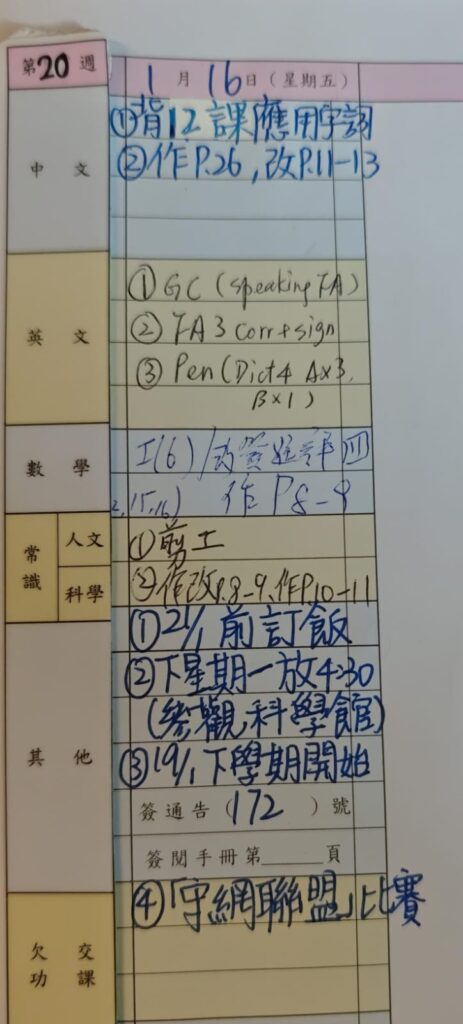 第20週
1月16日(星期五)
中文
①背12課應用字詞
②作P.26,改P.11-13
英文
①GC (speaking FA)
②FA3 corr+sign
③Pen(Dict4 A×3,
B×1)
數學
工(6)/改簽進評四
2,15,16) 作P8-9
常識
人文
①剪工
科學
②作改P.8-9,作P.10-11
其他
①21/1前訂飯
②下星期一放4:30
(參觀科學館)
③19/1下學期開始
簽通告(172)號
簽閱手冊第______頁
④「守網聯盟」比賽
欠交功課